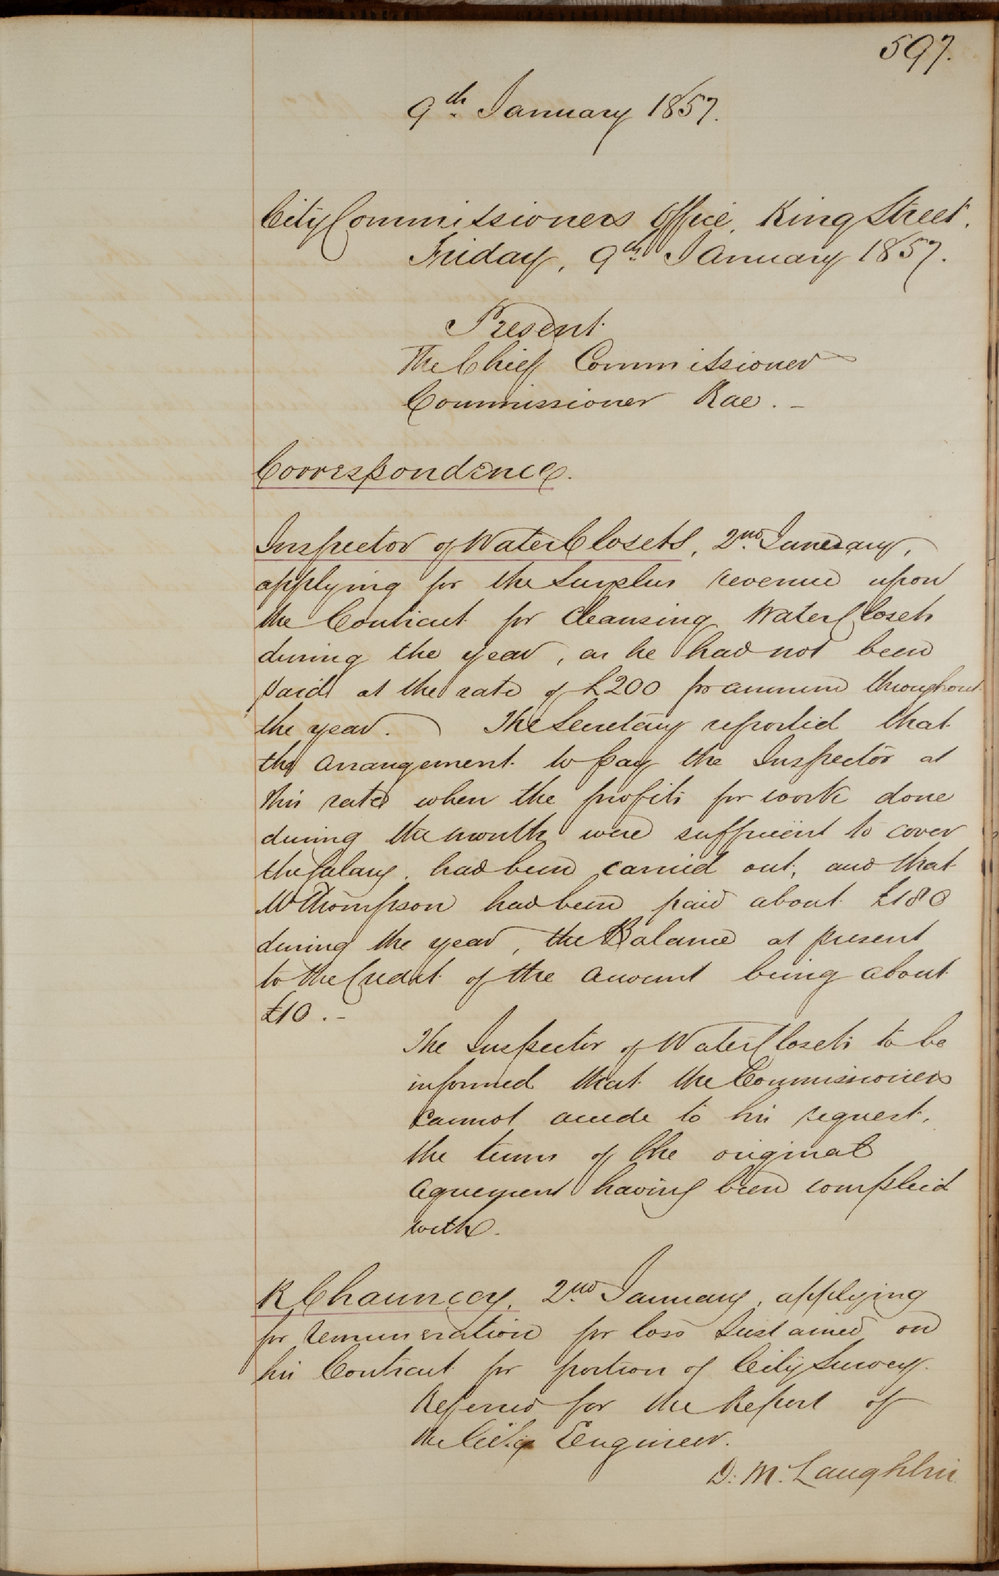 597.
9th January 1857.
City Commissioners Office, King Street,
Friday, 9th January 1857.
Present
The Chief Commissioner
Commissioner Rae. -
Correspondence.
Inspector of Water Closets, 2nd January,
applying for the Surplus revenue upon
the Contract for Cleansing Water Closets
during the year, as he had not been
paid at the rate of £200 pr annum throughout
the year. The Secretary reported that
the arrangement to pay the Inspector at
this rate when the profits for work done
during the month were sufficient to cover
the Salary, had been carried out, and that
Mr Thompson had been paid about £180
during the year, the Balance at present
to the Credit of the amount being about
£10. -
The Inspector of Water Closets to be
informed that the Commissioners
cannot accede to his request,
the terms of the original
agreement having been complied
with.
R Chauncey, 2nd January, applying
for remuneration for loss Sustained on
his Contract for portion of City Survey.
Referred for the Report of
the City Engineer.
D. McLaughlin